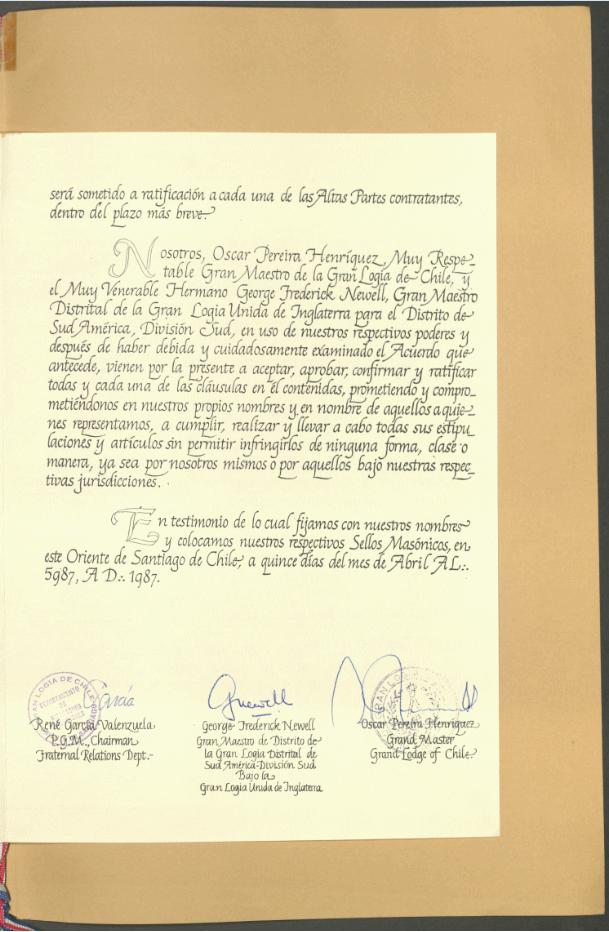 será sometido a ratificación a cada una de las Altas Partes contratantes,
dentro del plazo más breve.
Nosotros, Oscar Pereira Henríquez, Muy Respe_
table Gran Maestro de la Gran Logia de Chile, y
el Muy Venerable Hermano George Frederick Newell, Gran Maestro
Distrital de la Gran Logia Unida de Inglaterra para el Distrito de
Sud América, División Sud, en uso de nuestros respectivos poderes y
después de haber debida y cuidadosamente examinado el Acuerdo que
antecede, vienen por la presente a aceptar, aprobar, confirmar y ratificar
todas y cada una de las cláusulas en él contenidas, prometiendo y compro_
metiéndonos en nuestros propios nombres y en nombre de aquellos a quie_
nes representamos, a cumplir, realizar y llevar a cabo todas sus estipu_
laciones y artículos sin permitir infringirlos de ninguna forma, clase o
manera, ya sea por nosotros mismos o por aquellos bajo nuestras respec_
tivas jurisdicciones.
En testimonio de lo cual fijamos con nuestros nombres
y colocamos nuestros respectivos Sellos Masónicos, en
este Oriente de Santiago de Chile, a quince días del mes de Abril A L:.
5987, A D:. 1987.
GRAN LOGIA DE CHILE
DEPARTAMENTO
DE
García
GNewell
René García Valenzuela
P.G.M., Chairman
Fraternal Relations Dept.-
George Frederick Newell
Gran Maestro de Distrito de
la Gran Logia Distrital de
Sud América-División Sud
Bajo la
Gran Logia Unida de Inglaterra
Oscar Pereira Henriquez
Grand Master
Grand Lodge of Chile.